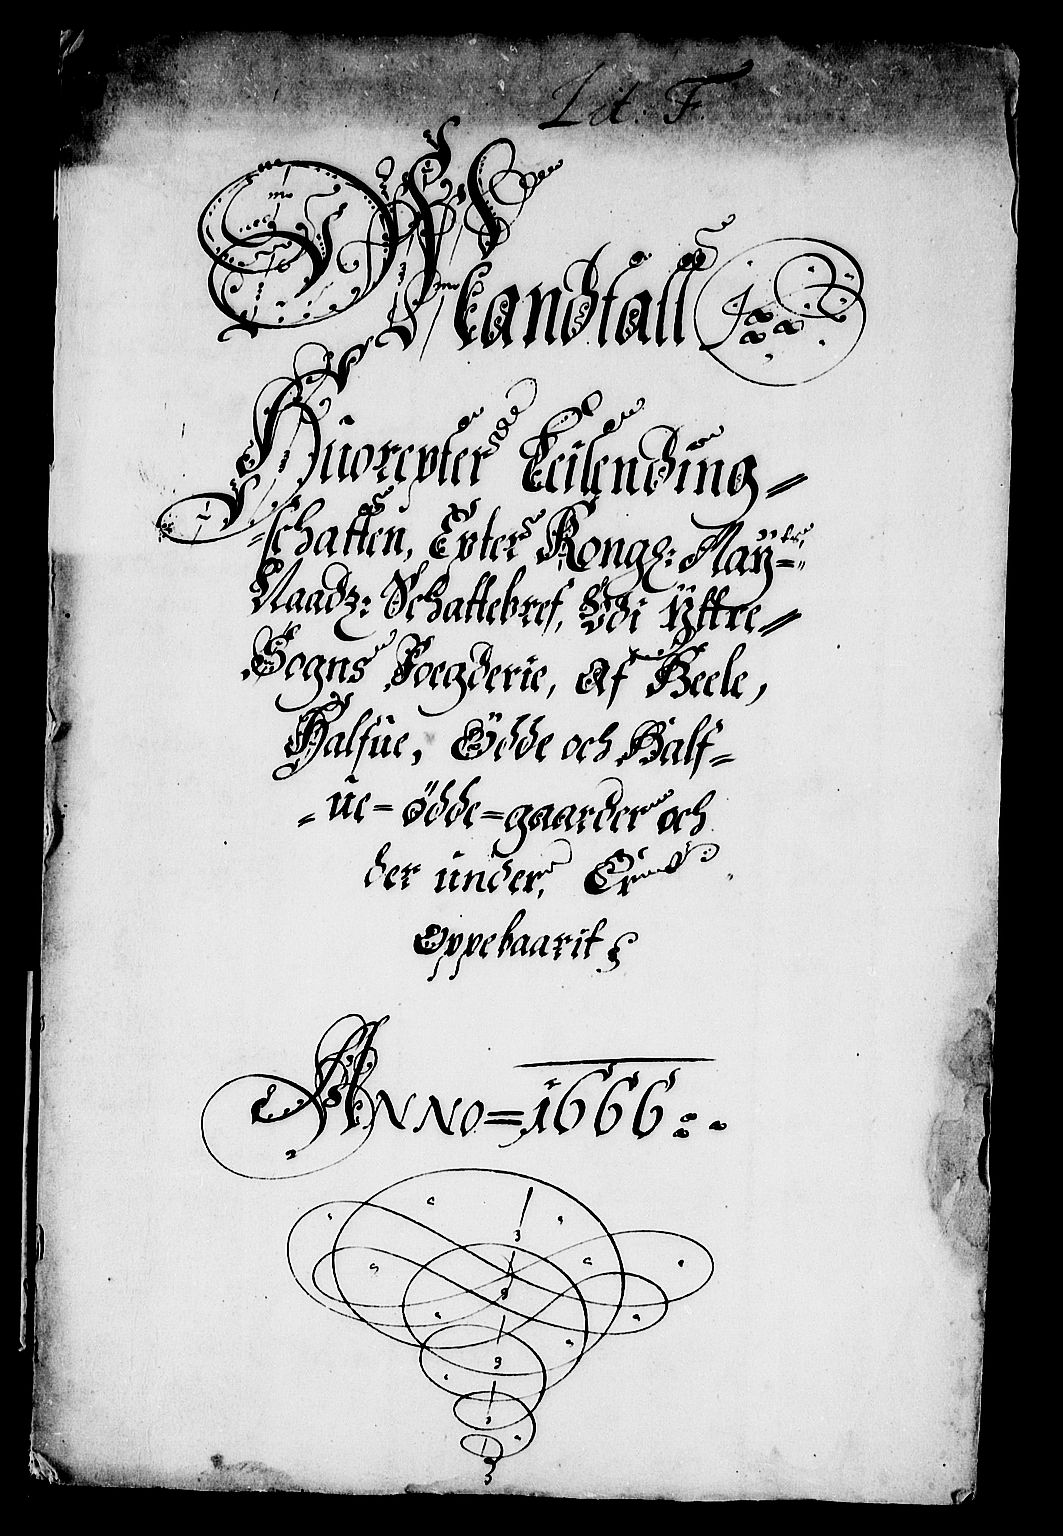 Lit: F.
Mandtall
Huorepter Leilending=
=schatten, Epter Kongl: May=tz
Naadz: Schattebref, Vdi Yttre=
Sogns Foegderie, af Heele,
Halfue, Ödde och Half=
=ue=ödde=gaarder och
der under, Er
Oppebaarit
Anno=1666